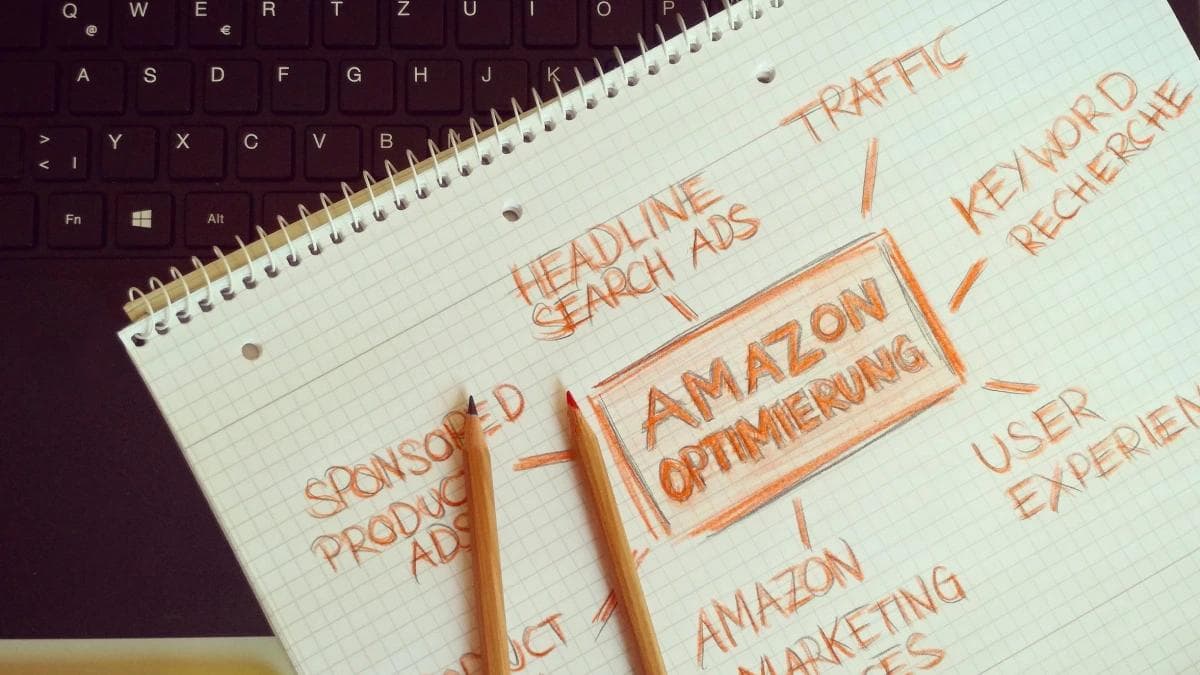 Q W E R T Z U I O P
@ €
A S D F G H J K
> Y X C V B
< |
Fn Alt
TRAFFIC
KEYWORD
RECHERCHE
HEADLINE
SEARCH ADS
AMAZON
OPTIMIERUNG
USER
SPONSORED
PRODUCT
ADS
AMAZON
MARKETING